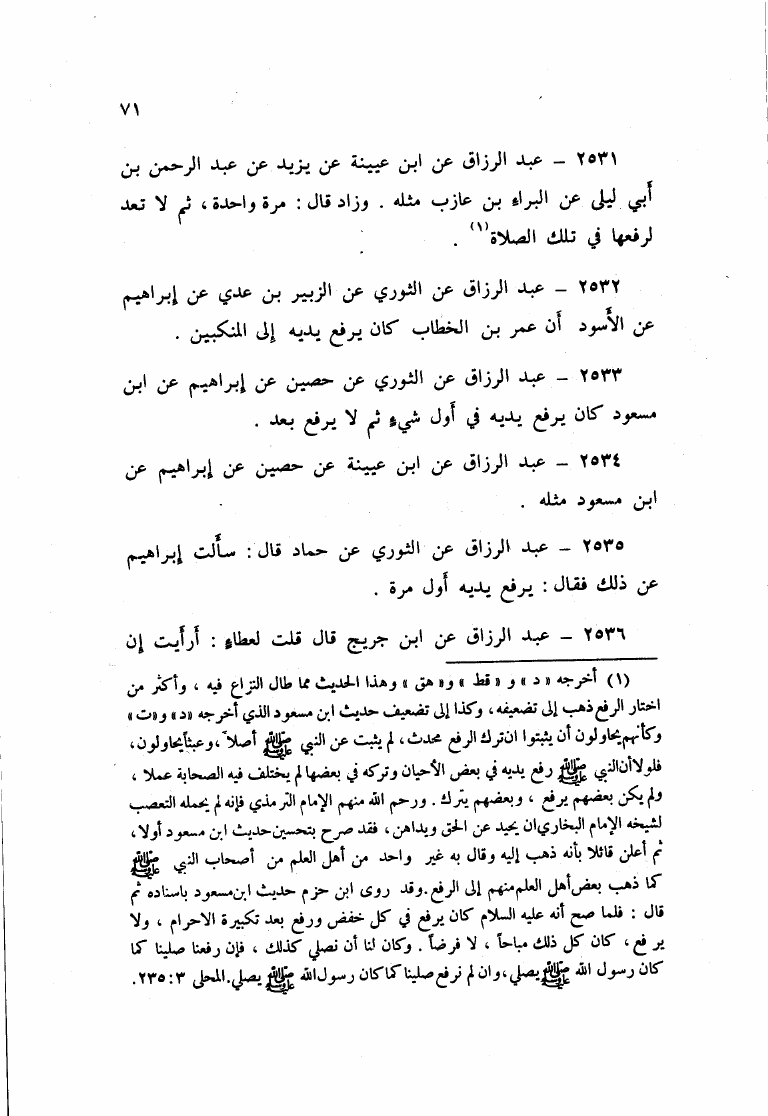 ٧١
٢٥٣١ – عبد الرزاق عن ابن عيينة عن يزيد عن عبد الرحمن بن
أبي ليلى عن البراء بن عازب مثله . وزاد قال : مرة واحدة ، ثم لا تعد
لرفعها في تلك الصلاة (١) .
٢٥٣٢ – عبد الرزاق عن الثوري عن الزبير بن عدي عن إبراهيم
عن الأسود أن عمر بن الخطاب كان يرفع يديه إلى المنكبين .
٢٥٣٣ – عبد الرزاق عن الثوري عن حصين عن إبراهيم عن ابن
مسعود كان يرفع يديه في أول شيءٍ ثم لا يرفع بعد .
٢٥٣٤ – عبد الرزاق عن ابن عيينة عن حصين عن إبراهيم عن
ابن مسعود مثله .
٢٥٣٥ – عبد الرزاق عن الثوري عن حماد قال : سألت إبراهيم
عن ذلك فقال : يرفع يديه أول مرة .
٢٥٣٦ – عبد الرزاق عن ابن جريج قال قلت لعطاءٍ : أرأيت إن
(١) أخرجه « د » و « قط » و« هق » وهذا الحديث مما طال النزاع فيه ، وأكثر من
اختار الرفع ذهب إلى تضعيفه ، وكذا إلى تضعيف حديث ابن مسعود الذي أخرجه «د» و«ت»
وكأنهم يحاولون أن يثبتوا ان ترك الرفع محدث ، لم يثبت عن النبي ﷺ أصلاً ، وعبثاً يحاولون ،
فلولا أن النبي ﷺ رفع يديه في بعض الأحيان وتركه في بعضها لم يختلف فيه الصحابة عملا ،
ولم يكن بعضهم يرفع ، وبعضهم يترك . ورحم الله منهم الإمام الترمذي فإنه لم يحمله التعصب
لشيخه الإمام البخاري ان يحيد عن الحق ويداهن ، فقد صرح بتحسين حديث ابن مسعود أولا ،
ثم أعلن قائلا بأنه ذهب إليه وقال به غير واحد من أهل العلم من أصحاب النبي ﷺ
كما ذهب بعض أهل العلم منهم إلى الرفع . وقد روى ابن حزم حديث ابن مسعود باسناده ثم
قال : فلما صح أنه عليه السلام كان يرفع في كل خفض ورفع بعد تكبيرة الاحرام ، ولا
يرفع ، كان كل ذلك مباحاً ، لا فرضاً . وكان لنا أن نصلي كذلك ، فإن رفعنا صلينا كما
كان رسول الله ﷺ يصلي ، وان لم نرفع صلينا كما كان رسول الله ﷺ يصلي . المحلى ٣ : ٢٣٥ .